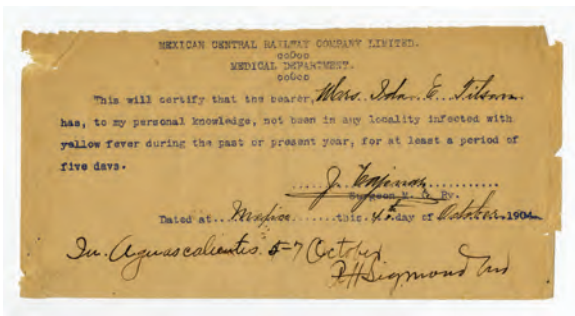 MEXICAN CENTRAL RAILWAY COMPANY LIMITED.
ooOoo
MEDICAL DEPARTMENT.
ooOoo
This will certify that the bearer, Mrs. Ida. E. Tilson
has, to my personal knowledge, not been in any locality infected with
yellow fever during the past or present year, for at least a period of
five days.
J.
Surgeon M. C. Ry.
Dated at...Mexico......this 4th day of October 1904
In Aguascalientes 5-7 October
Sigmond MD